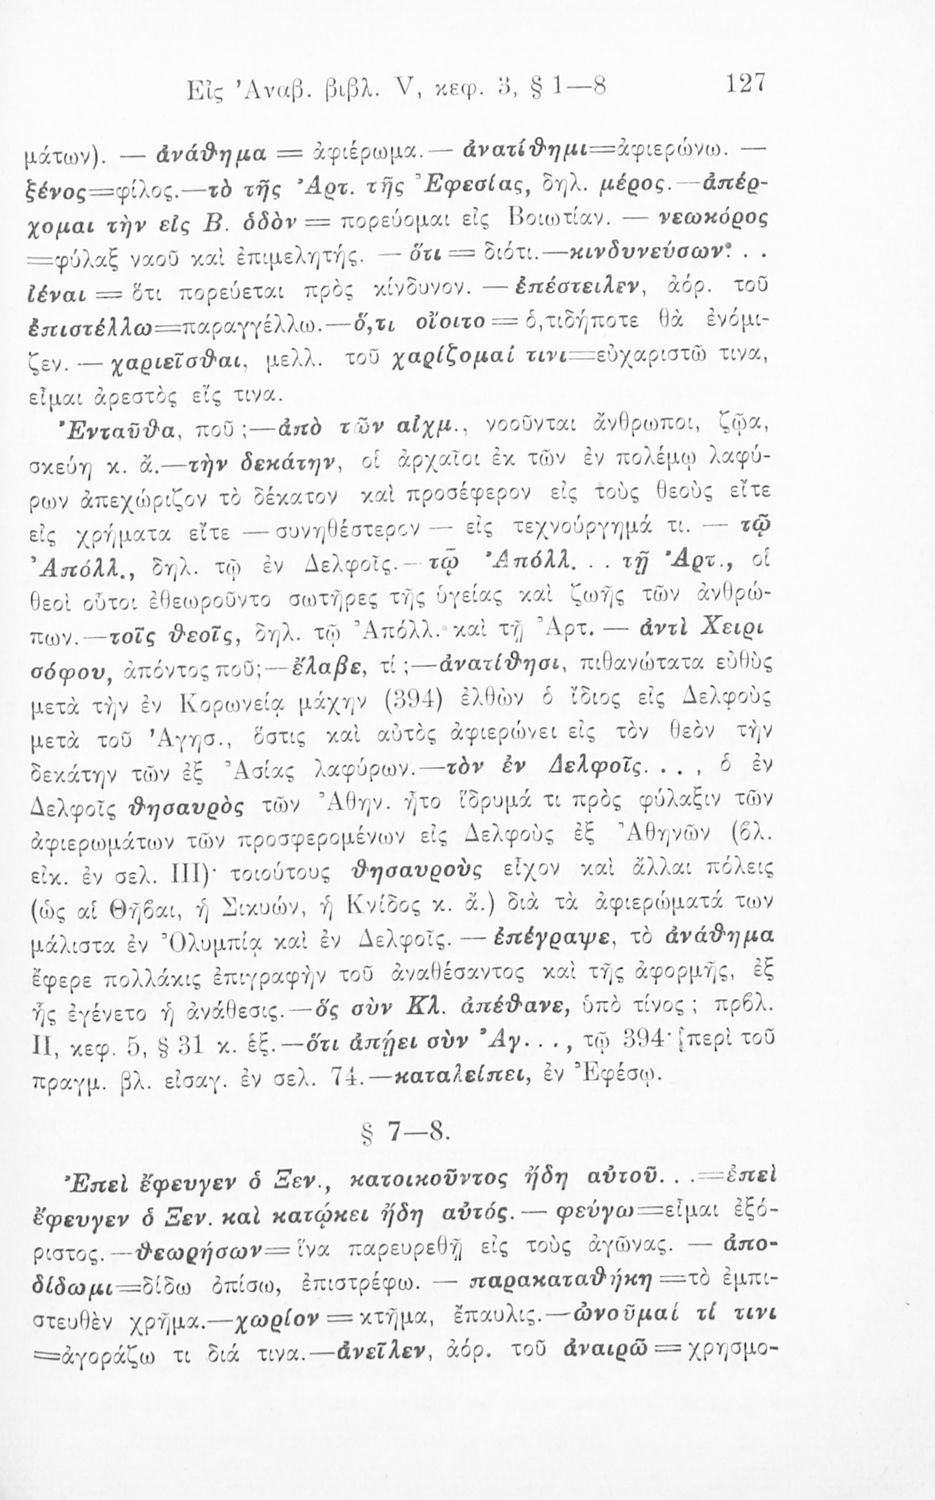 Εἰς Ἀναβ. βιβλ. V, κεφ. 3, § 1—8 127
μάτων). — ἀνάθημα = ἀφιέρωμα. — ἀνατίθημι=ἀφιερώνω. —
ξένος=φίλος.—τὸ τῆς Ἀρτ. τῆς Ἐφεσίας, δηλ. μέρος.—ἀπέρ-
χομαι τὴν εἰς Β. ὁδὸν = πορεύομαι εἰς Βοιωτίαν. — νεωκόρος
=φύλαξ ναοῦ καὶ ἐπιμελητής. — ὅτι = διότι.—κινδυνεύσων. . .
ἰέναι = ὅτι πορεύεται πρὸς κίνδυνον. — ἐπέστειλεν, ἀόρ. τοῦ
ἐπιστέλλω=παραγγέλλω.—ὅ,τι οἴοιτο = ὁ,τιδήποτε θὰ ἐνόμι-
ζεν. — χαριεῖσθαι, μελλ. τοῦ χαρίζομαί τινι=εὐχαριστῶ τινα,
εἶμαι ἀρεστὸς εἴς τινα.
Ἐνταῦθα, ποῦ ;—ἀπὸ τῶν αἰχμ., νοοῦνται ἄνθρωποι, ζῷα,
σκεύη κ. ἄ.—τὴν δεκάτην, οἱ ἀρχαῖοι ἐκ τῶν ἐν πολέμῳ λαφύ-
ρων ἀπεχώριζον τὸ δέκατον καὶ προσέφερον εἰς τοὺς θεοὺς εἴτε
εἰς χρήματα εἴτε — συνηθέστερον — εἰς τεχνούργημά τι. — τῷ
Ἀπόλλ., δηλ. τῷ ἐν Δελφοῖς.— τῷ Ἀπόλλ. . . τῇ Ἀρτ., οἱ
θεοὶ οὗτοι ἐθεωροῦντο σωτῆρες τῆς ὑγείας καὶ ζωῆς τῶν ἀνθρώ-
πων.—τοῖς θεοῖς, δηλ. τῷ Ἀπόλλ. καὶ τῇ Ἀρτ. — ἀντὶ Χειρι
σόφου, ἀπόντος ποῦ;—ἔλαβε, τί ;—ἀνατίθησι, πιθανώτατα εὐθὺς
μετὰ τὴν ἐν Κορωνείᾳ μάχην (394) ἐλθὼν ὁ ἴδιος εἰς Δελφοὺς
μετὰ τοῦ Ἀγησ., ὅστις καὶ αὐτὸς ἀφιερώνει εἰς τὸν θεὸν τὴν
δεκάτην τῶν ἐξ Ἀσίας λαφύρων.—τὸν ἐν Δελφοῖς. . . , ὁ ἐν
Δελφοῖς θησαυρὸς τῶν Ἀθην. ἦτο ἵδρυμά τι πρὸς φύλαξιν τῶν
ἀφιερωμάτων τῶν προσφερομένων εἰς Δελφοὺς ἐξ Ἀθηνῶν (βλ.
εἰκ. ἐν σελ. III)· τοιούτους θησαυροὺς εἶχον καὶ ἄλλαι πόλεις
(ὡς αἱ Θῆβαι, ἡ Σικυών, ἡ Κνίδος κ. ἄ.) διὰ τὰ ἀφιερώματά των
μάλιστα ἐν Ὀλυμπίᾳ καὶ ἐν Δελφοῖς. — ἐπέγραψε, τὸ ἀνάθημα
ἔφερε πολλάκις ἐπιγραφὴν τοῦ ἀναθέσαντος καὶ τῆς ἀφορμῆς, ἐξ
ἧς ἐγένετο ἡ ἀνάθεσις.—ὃς σὺν Κλ. ἀπέθανε, ὑπὸ τίνος ; πρβλ.
II, κεφ. 5, § 31 κ. ἑξ.—ὅτι ἀπῄει σὺν Ἀγ. . ., τῷ 394· [περὶ τοῦ
πραγμ. βλ. εἰσαγ. ἐν σελ. 74.—καταλείπει, ἐν Ἐφέσῳ.
§ 7—8.
Ἐπεὶ ἔφευγεν ὁ Ξεν., κατοικοῦντος ἤδη αὐτοῦ. . .=ἐπεὶ
ἔφευγεν ὁ Ξεν. καὶ κατῴκει ἤδη αὐτός. — φεύγω=εἶμαι ἐξό-
ριστος.—θεωρήσων=ἵνα παρευρεθῇ εἰς τοὺς ἀγῶνας. — ἀπο-
δίδωμι=δίδω ὀπίσω, ἐπιστρέφω. — παρακαταθήκη =τὸ ἐμπι-
στευθὲν χρῆμα.—χωρίον = κτῆμα, ἔπαυλις.—ὠνοῦμαί τί τινι
=ἀγοράζω τι διά τινα.—ἀνεῖλεν, ἀόρ. τοῦ ἀναιρῶ = χρησμο-